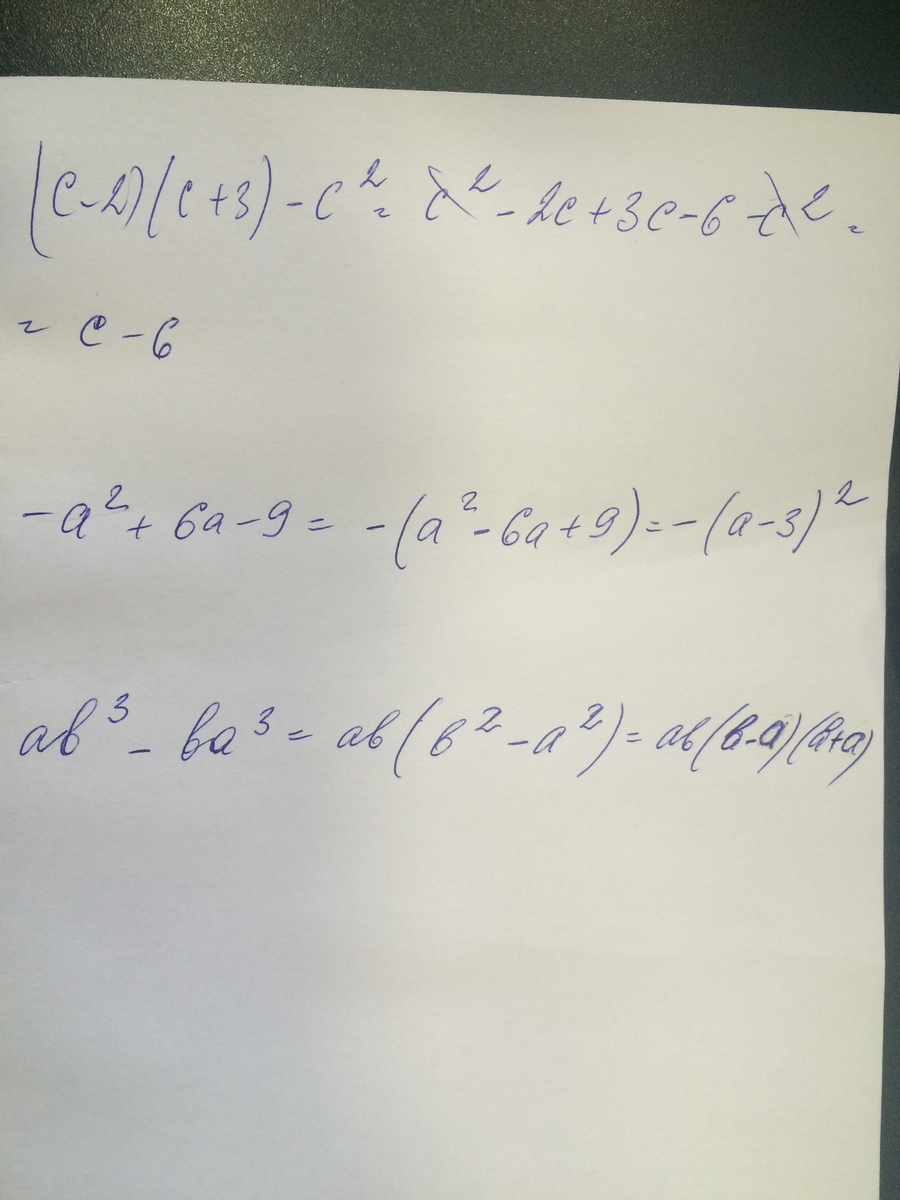 (c-2)(c+3)-c²= c²-2c+3c-6-c²=
= c-6
-a²+6a-9= -(a²-6a+9)=-(a-3)²
ab³-ba³= ab(b²-a²)= ab(b-a)(b+a)